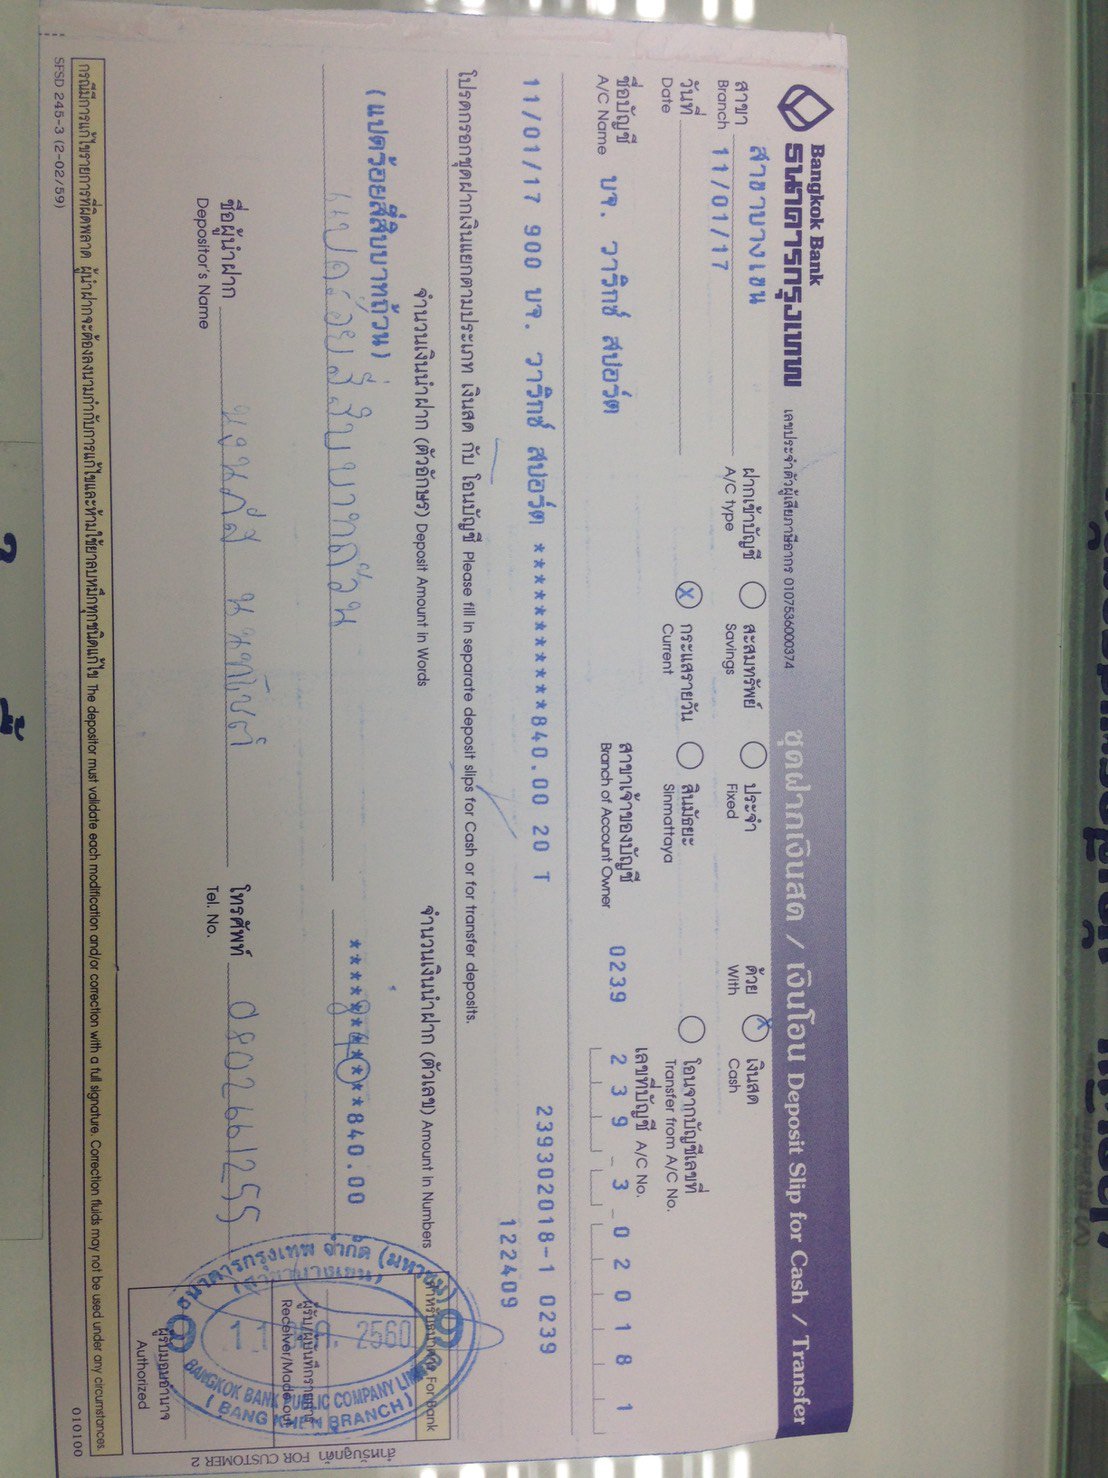 Bangkok Bank
ธนาคารกรุงเทพ
เลขประจำตัวผู้เสียภาษีอากร 0107536000374
ชุดฝากเงินสด / เงินโอน Deposit Slip for Cash / Transfer
สาขา
Branch
สาขาบางเขน
11/01/17
วันที่
Date
ฝากเข้าบัญชี
A/C type
สะสมทรัพย์
Savings
ประจำ
Fixed
ด้วย
With
เงินสด
Cash
X
X
กระแสรายวัน
Current
สินมัธยะ
Sinmattaya
โอนจากบัญชีเลขที่
Transfer from A/C No.
ชื่อบัญชี
A/C Name
บจ. วาริกซ์ สปอร์ต
สาขาเจ้าของบัญชี
Branch of Account Owner
0239
เลขที่บัญชี A/C No.
2 3 9 - 3 - 0 2 0 1 8 1
11/01/17 900 บจ. วาริกซ์ สปอร์ต ************840.00 20 T
239302018-1 0239
122409
โปรดกรอกชุดฝากเงินแยกตามประเภท เงินสด กับ โอนบัญชี Please fill in separate deposit slips for Cash or for transfer deposits.
จำนวนเงินนำฝาก (ตัวอักษร) Deposit Amount in Words
จำนวนเงินนำฝาก (ตัวเลข) Amount in Numbers
(แปดร้อยสี่สิบบาทถ้วน)
แปดร้อยสี่สิบบาทถ้วน
************840.00
ชื่อผู้นำฝาก
Depositor's Name
โทรศัพท์
Tel. No.
0802661255
สำหรับธนาคาร For Bank
ผู้รับ/ผู้บันทึกรายการ
Receiver/Made out
ผู้รับมอบอำนาจ
Authorized
ธนาคารกรุงเทพ จำกัด (มหาชน)
(สาขาบางเขน)
9 9
11 ม.ค. 2560
BANGKOK BANK PUBLIC COMPANY LIMITED
(BANG KHEN BRANCH)
กรณีมีการแก้ไขรายการที่ผิดพลาด ผู้นำฝากจะต้องลงนามกำกับการแก้ไขและห้ามใช้ยาลบหมึกทุกชนิดแก้ไข The depositor must validate each modification and/or correction with a full signature. Correction fluids may not be used under any circumstances.
SFSD 245-3 (2-02/59)
010100
สำหรับลูกค้า FOR CUSTOMER 2